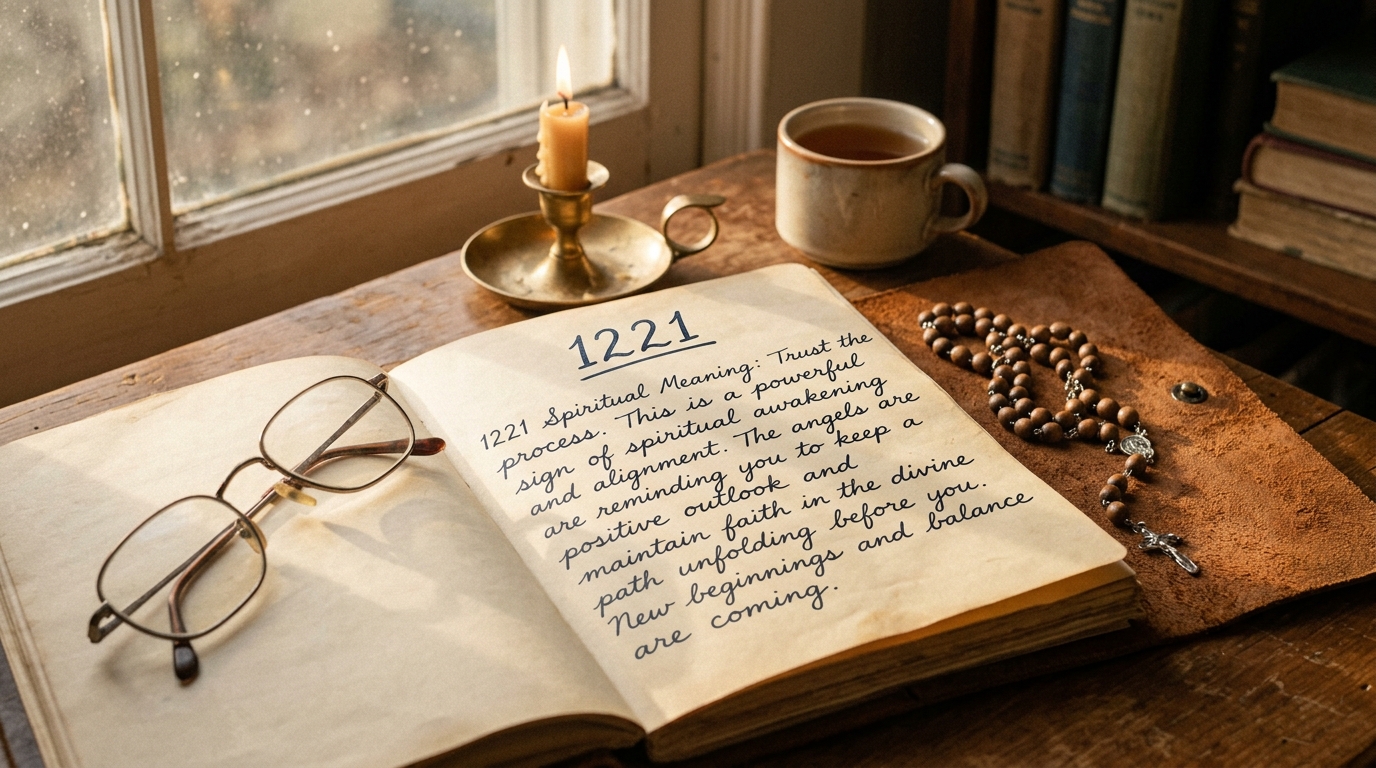 1221
1221 Spiritual Meaning: Trust the
process. This is a powerful
sign of spiritual awakening
and alignment. The angels are
are reminding you to keep a
positive outlook and
maintain faith in the divine
path unfolding before you.
New beginnings and balance
are coming.